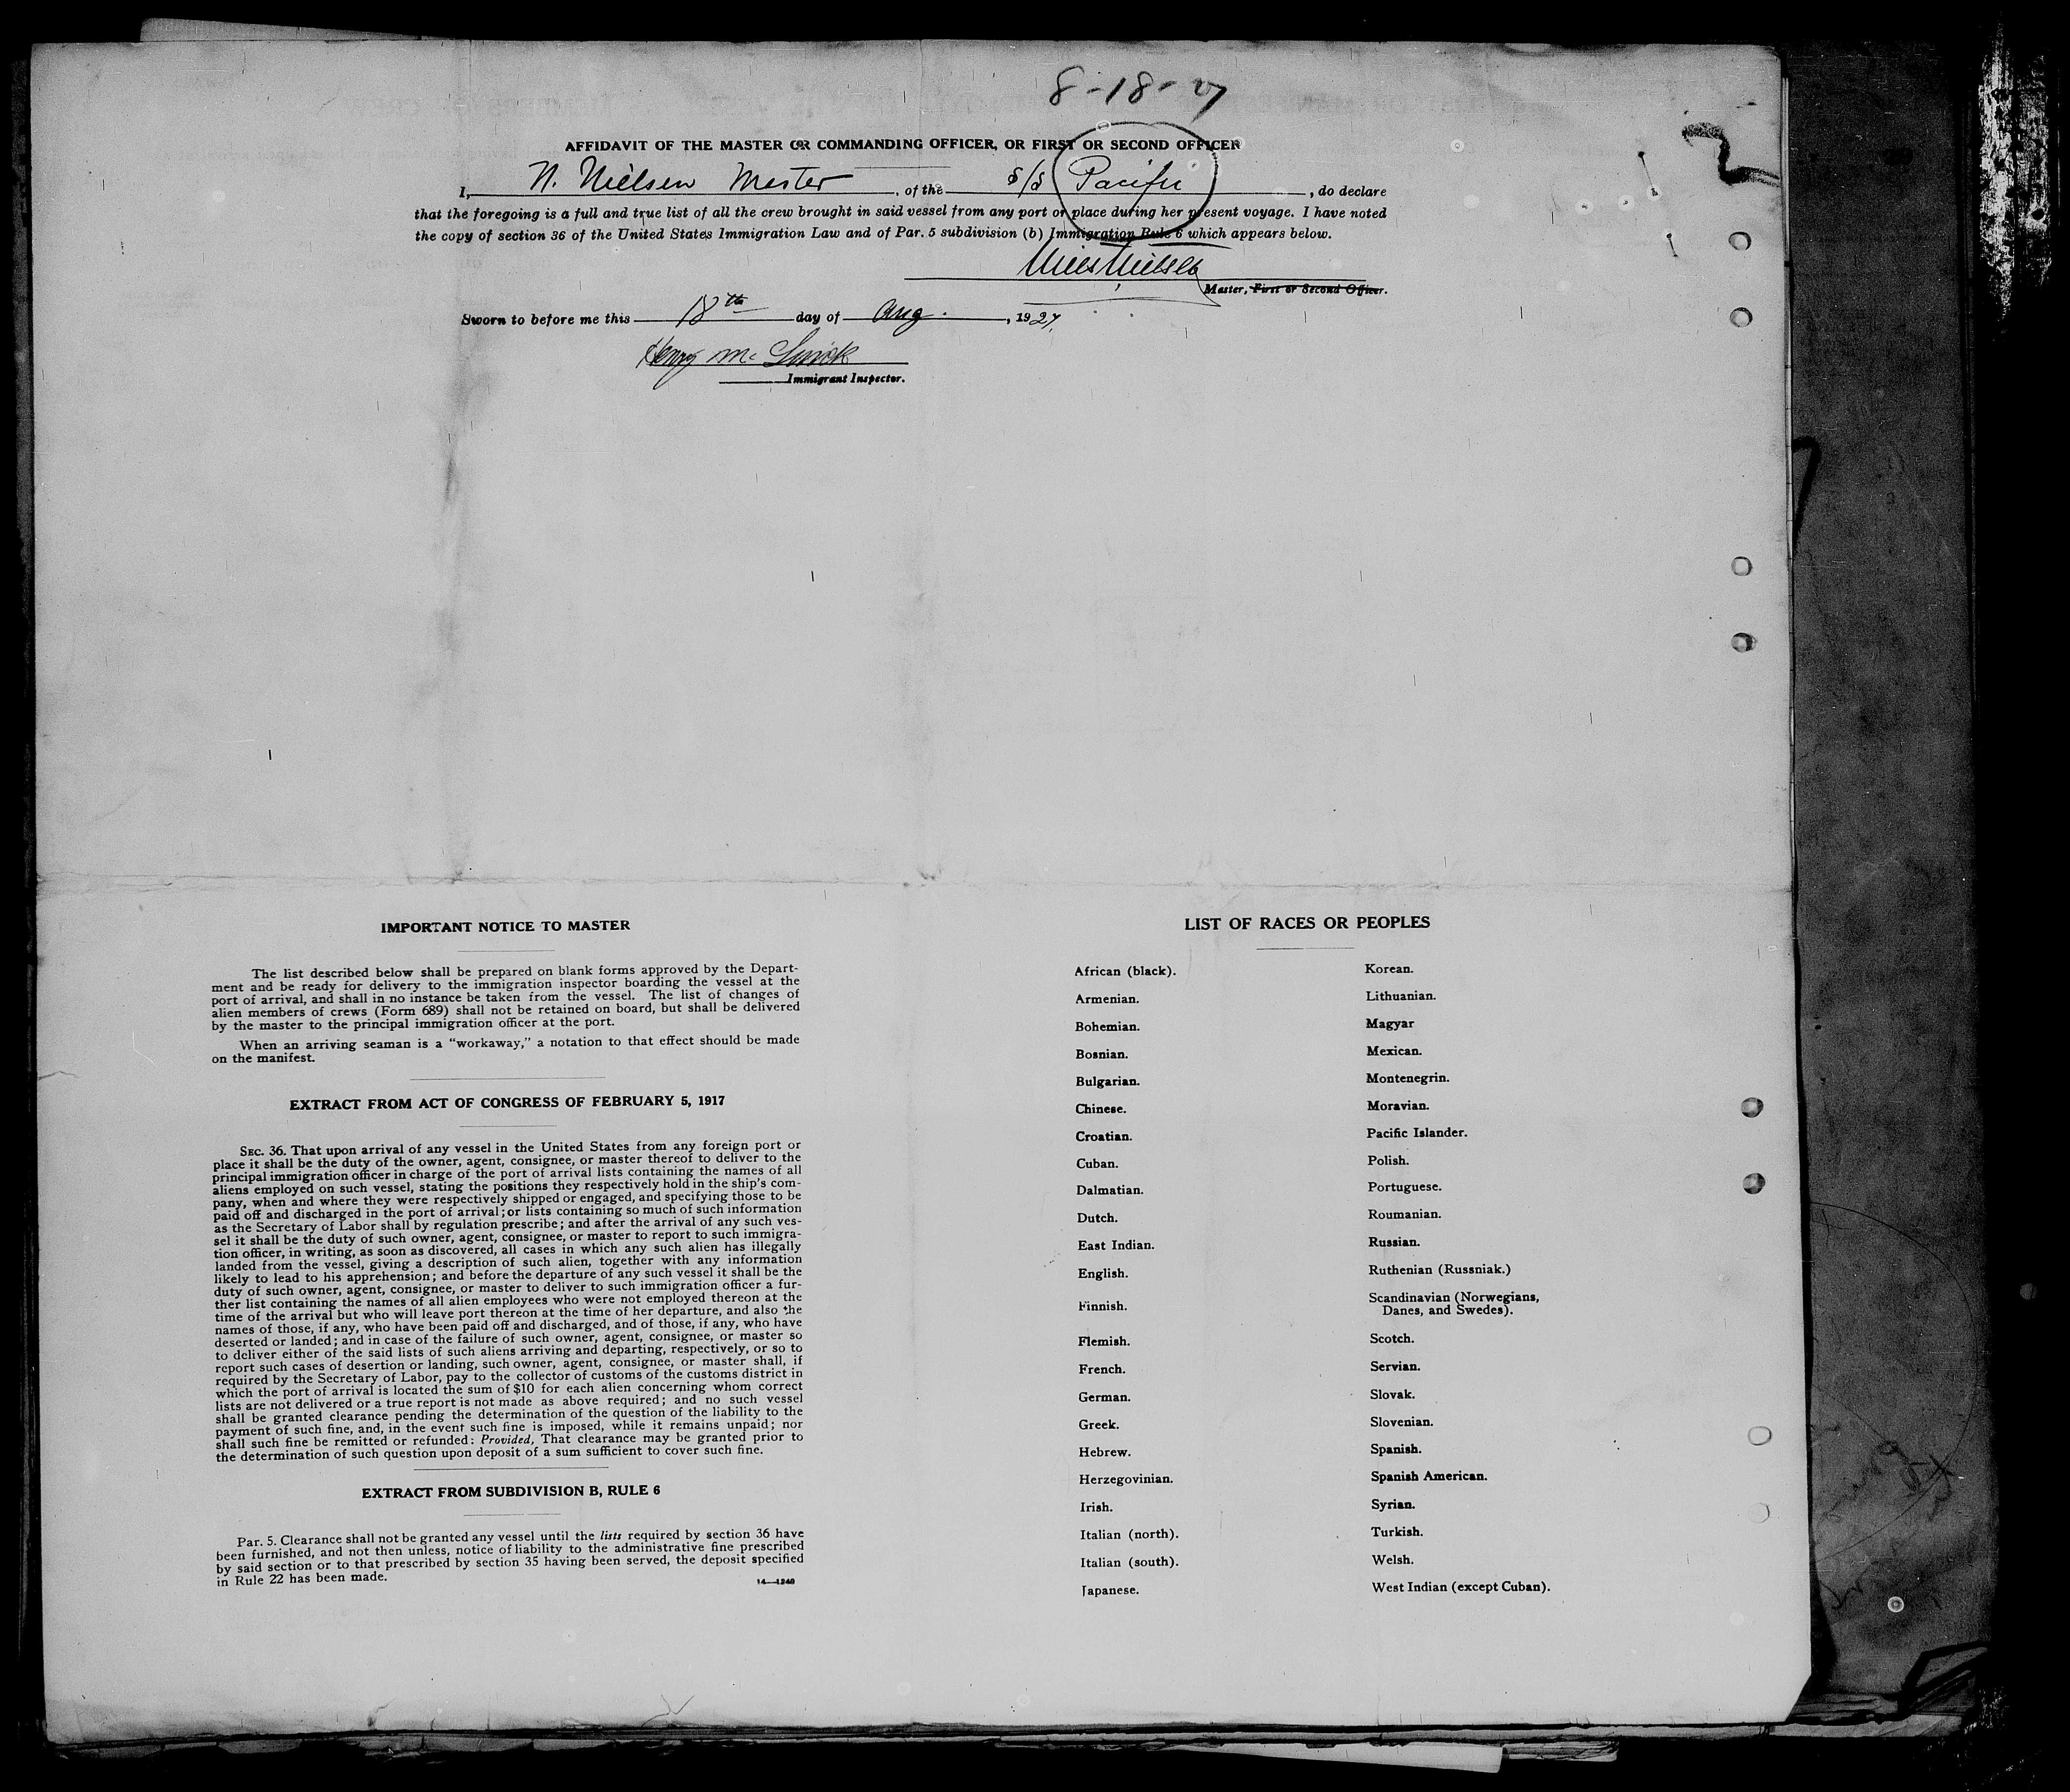 8-18-27
AFFIDAVIT OF THE MASTER OR COMMANDING OFFICER, OR FIRST OR SECOND OFFICER
I, N. Nielsen Master, of the S/S Pacific, do declare
that the foregoing is a full and true list of all the crew brought in said vessel from any port or place during her present voyage. I have noted
the copy of section 36 of the United States Immigration Law and of Par. 5 subdivision (b) Immigration Rule 6 which appears below.
Niels Nielsen
Master, First or Second Officer.
Sworn to before me this 18th day of Aug., 1927.
Henry Mc
Immigrant Inspector.
IMPORTANT NOTICE TO MASTER
The list described below shall be prepared on blank forms approved by the Depart-
ment and be ready for delivery to the immigration inspector boarding the vessel at the
port of arrival, and shall in no instance be taken from the vessel. The list of changes of
alien members of crews (Form 689) shall not be retained on board, but shall be delivered
by the master to the principal immigration officer at the port.
When an arriving seaman is a "workaway," a notation to that effect should be made
on the manifest.
EXTRACT FROM ACT OF CONGRESS OF FEBRUARY 5, 1917
SEC. 36. That upon arrival of any vessel in the United States from any foreign port or
place it shall be the duty of the owner, agent, consignee, or master thereof to deliver to the
principal immigration officer in charge of the port of arrival lists containing the names of all
aliens employed on such vessel, stating the positions they respectively hold in the ship's com-
pany, when and where they were respectively shipped or engaged, and specifying those to be
paid off and discharged in the port of arrival; or lists containing so much of such information
as the Secretary of Labor shall by regulation prescribe; and after the arrival of any such ves-
sel it shall be the duty of such owner, agent, consignee, or master to report to such immigra-
tion officer, in writing, as soon as discovered, all cases in which any such alien has illegally
landed from the vessel, giving a description of such alien, together with any information
likely to lead to his apprehension; and before the departure of any such vessel it shall be the
duty of such owner, agent, consignee, or master to deliver to such immigration officer a fur-
ther list containing the names of all alien employees who were not employed thereon at the
time of the arrival but who will leave port thereon at the time of her departure, and also the
names of those, if any, who have been paid off and discharged, and of those, if any, who have
deserted or landed; and in case of the failure of such owner, agent, consignee, or master so
to deliver either of the said lists of such aliens arriving and departing, respectively, or so to
report such cases of desertion or landing, such owner, agent, consignee, or master shall, if
required by the Secretary of Labor, pay to the collector of customs of the customs district in
which the port of arrival is located the sum of $10 for each alien concerning whom correct
lists are not delivered or a true report is not made as above required; and no such vessel
shall be granted clearance pending the determination of the question of the liability to the
payment of such fine, and, in the event such fine is imposed, while it remains unpaid; nor
shall such fine be remitted or refunded: Provided, That clearance may be granted prior to
the determination of such question upon deposit of a sum sufficient to cover such fine.
EXTRACT FROM SUBDIVISION B, RULE 6
Par. 5. Clearance shall not be granted any vessel until the lists required by section 36 have
been furnished, and not then unless, notice of liability to the administrative fine prescribed
by said section or to that prescribed by section 35 having been served, the deposit specified
in Rule 22 has been made.
14—1240
LIST OF RACES OR PEOPLES
African (black).
Armenian.
Bohemian.
Bosnian.
Bulgarian.
Chinese.
Croatian.
Cuban.
Dalmatian.
Dutch.
East Indian.
English.
Finnish.
Flemish.
French.
German.
Greek.
Hebrew.
Herzegovinian.
Irish.
Italian (north).
Italian (south).
Japanese.
Korean.
Lithuanian.
Magyar
Mexican.
Montenegrin.
Moravian.
Pacific Islander.
Polish.
Portuguese.
Roumanian.
Russian.
Ruthenian (Russniak.)
Scandinavian (Norwegians,
Danes, and Swedes).
Scotch.
Servian.
Slovak.
Slovenian.
Spanish.
Spanish American.
Syrian.
Turkish.
Welsh.
West Indian (except Cuban).